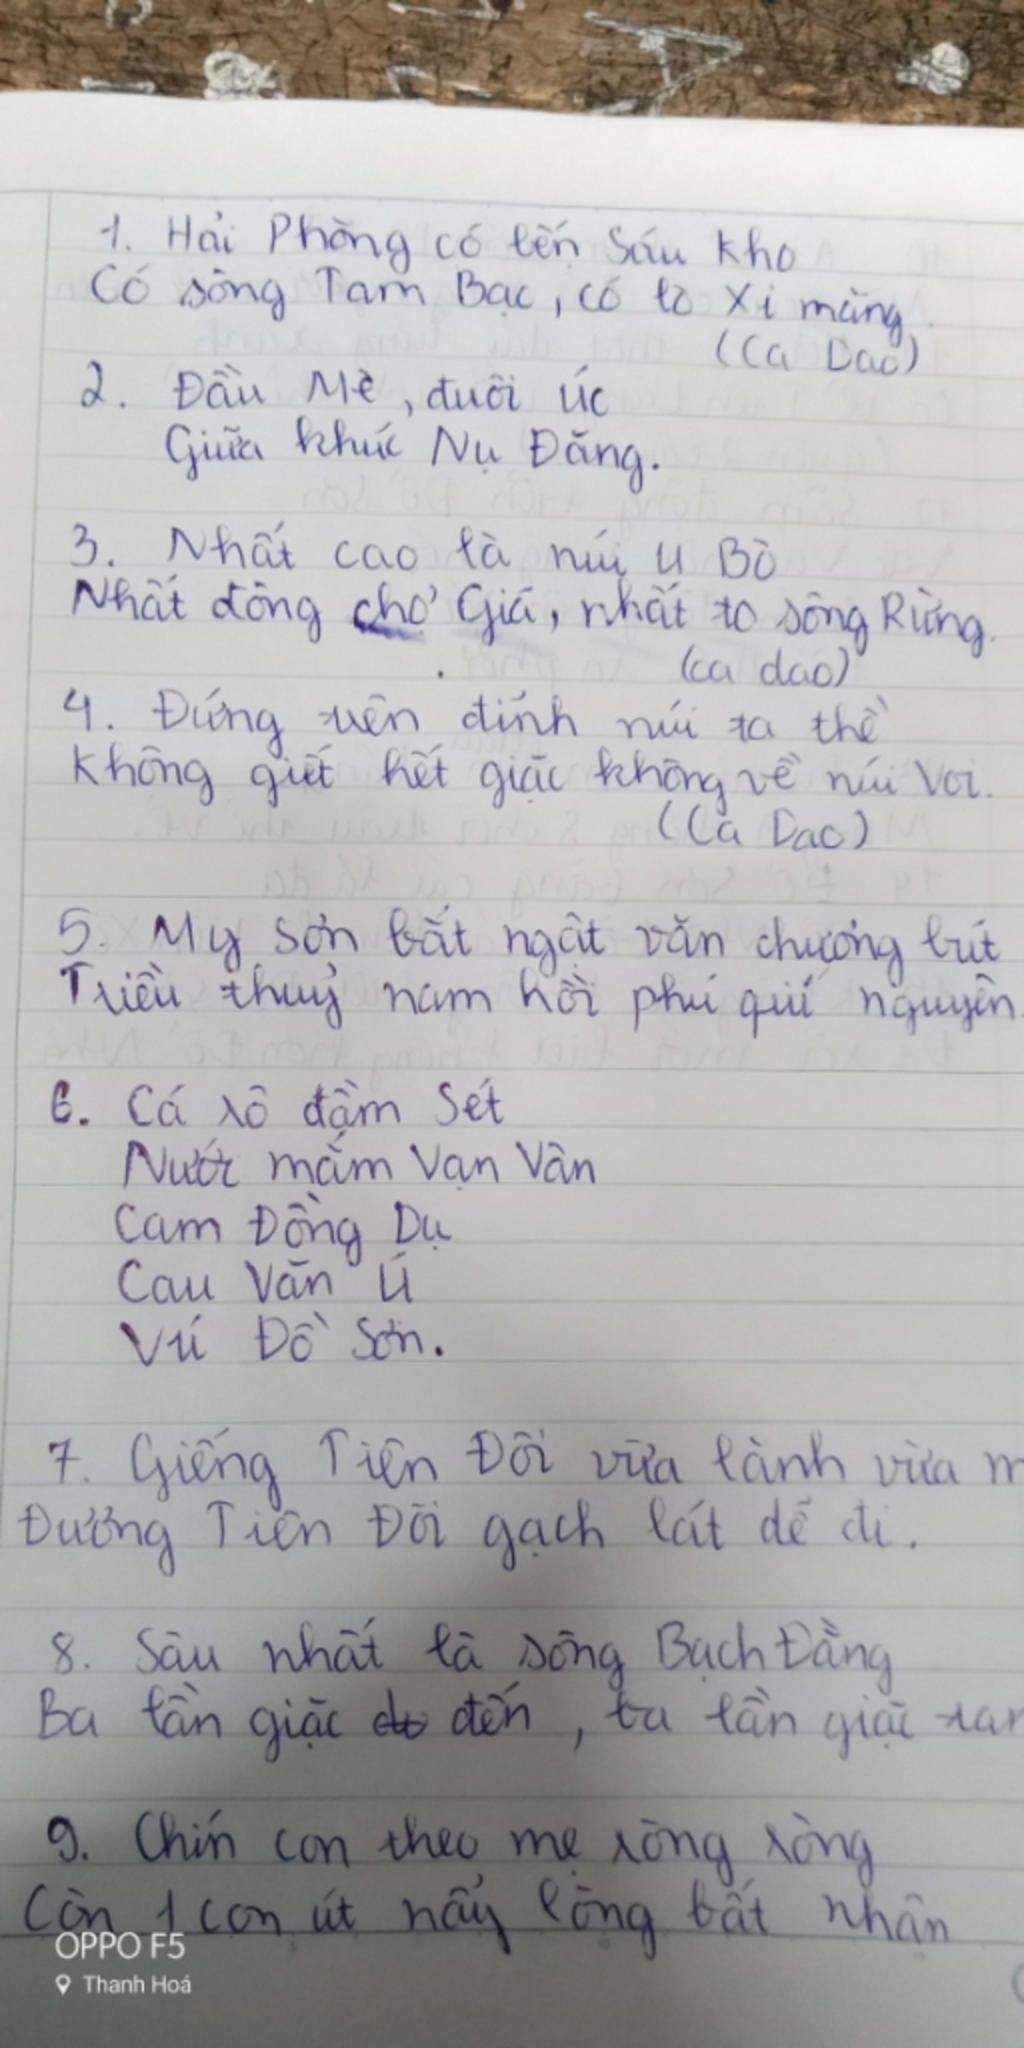 1. Hải Phòng có bến Sáu Kho
Có sông Tam Bạc, có lò Xi măng
(Ca Dao)
2. Đầu Mè, đuôi Úc
Giữa khúc Nụ Đăng.
3. Nhất cao là núi U Bò
Nhất đông chợ Giá, nhất to sông Rừng.
(ca dao)
4. Đứng trên đỉnh núi ta thề
Không giết hết giặc không về núi Voi.
(Ca Dao)
5. My Sơn bất ngật văn chương bút
Triều thuỷ nam hồi phú quí nguyên
6. Cá rô đầm Sét
Nước mắm Vạn Vân
Cam Đồng Dụ
Cau Văn Ú
Vú Đồ Sơn.
7. Giếng Tiên Đôi vừa lành vừa m
Đường Tiên Đôi gạch lát dễ đi.
8. Sâu nhất là sông Bạch Đằng
Ba lần giặc đến, ba lần giặc tan
9. Chín con theo mẹ ròng ròng
Còn 1 con út nẩy lòng bất nhân
OPPO F5
Thanh Hoá